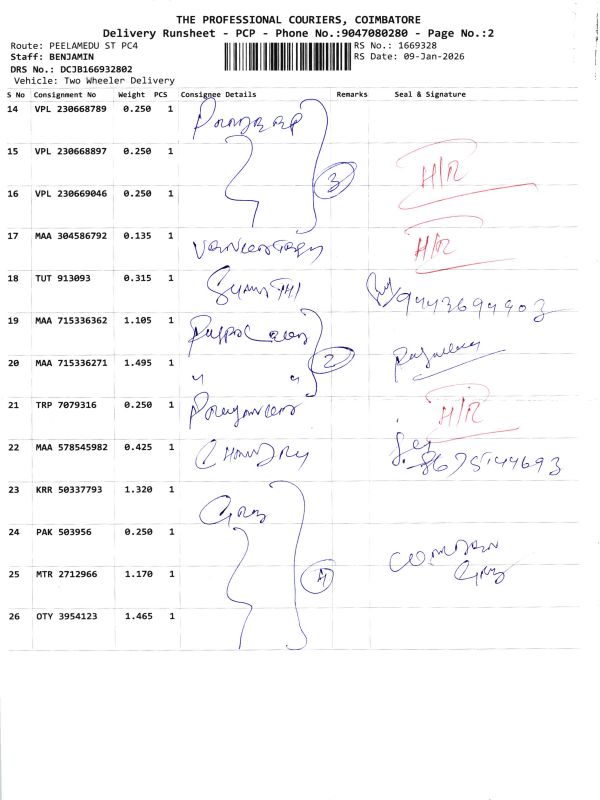 THE PROFESSIONAL COURIERS, COIMBATORE
Delivery Runsheet - PCP - Phone No.:9047080280 - Page No.:2
Route: PEELAMEDU ST PC4 RS No.: 1669328
Staff: BENJAMIN RS Date: 09-Jan-2026
DRS No.: DCJB166932802
Vehicle: Two Wheeler Delivery
S No Consignment No Weight PCS Consignee Details Remarks Seal & Signature
14 VPL 230668789 0.250 1
15 VPL 230668897 0.250 1
3 H/R
16 VPL 230669046 0.250 1
17 MAA 304586792 0.135 1 H/R
18 TUT 913093 0.315 1
19 MAA 715336362 1.105 1
2
20 MAA 715336271 1.495 1 " "
21 TRP 7079316 0.250 1 H/R
22 MAA 578545982 0.425 1 8675144693
23 KRR 50337793 1.320 1
24 PAK 503956 0.250 1
25 MTR 2712966 1.170 1 4
26 OTY 3954123 1.465 1